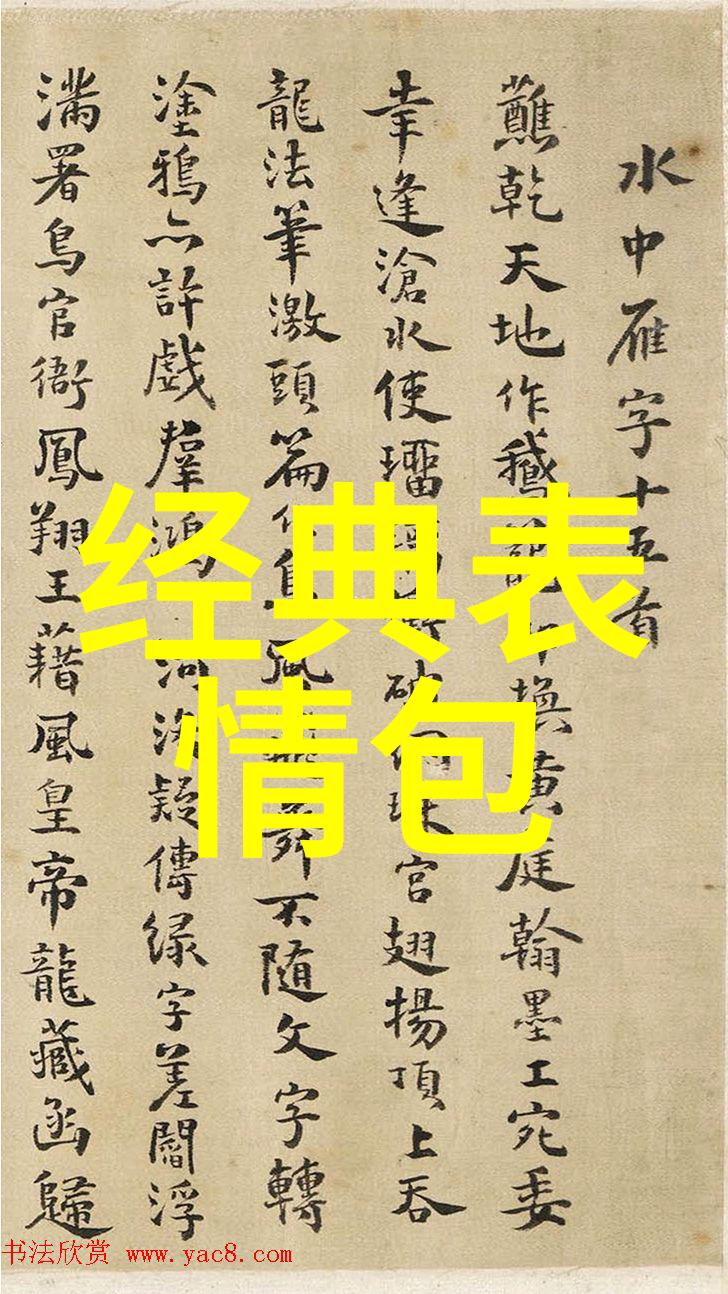 水中雁字十五首
蘸乾天地作鵝換黃庭翰墨工宛委
幸逢滄水使璢宮翅揚頂上吞
龍法筆激頭篇不隨文字轉
塗鴉亦許戲羣鴻河洛疑傳綠字差閻浮
滿署鳥官衙鳳翔王藉風皇帝龍藏函歸
经典表
情包
书法欣赏 www.yac8.com